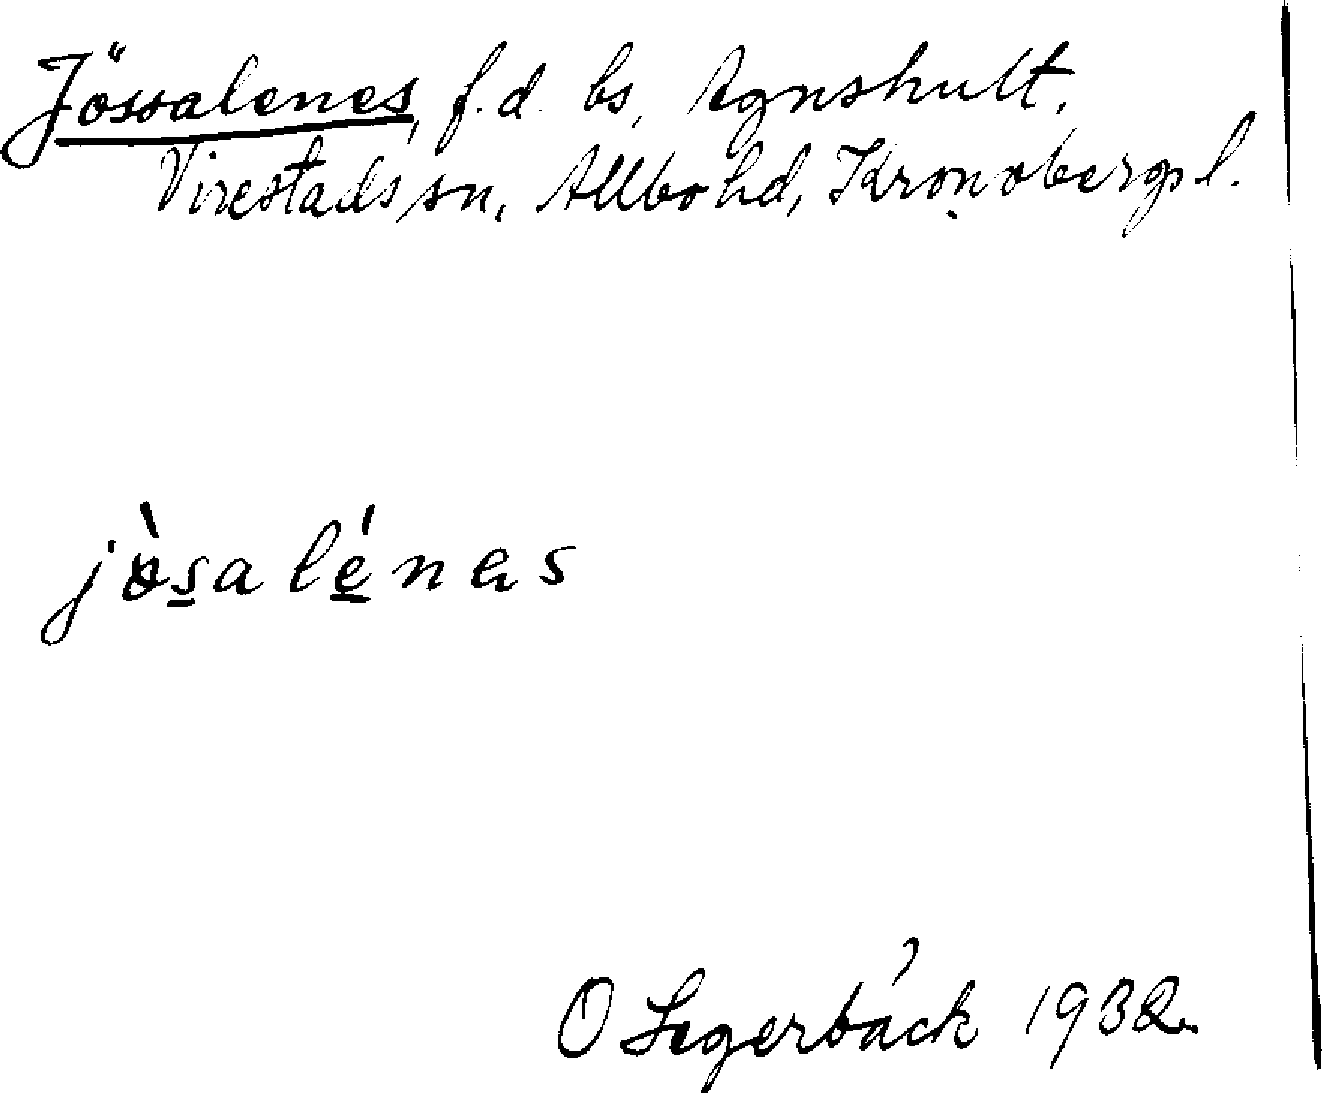 Jössalenes, f.d. bs, Agnshult,
Virestads sn, Allbo hd, Kronobergs l.
jòsalénas
O Segerbäck 1932